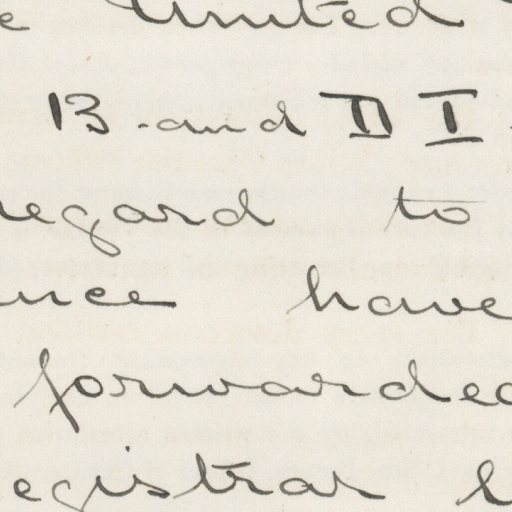 e United
B and II I
regard to
ence have
forwarded
egistrar